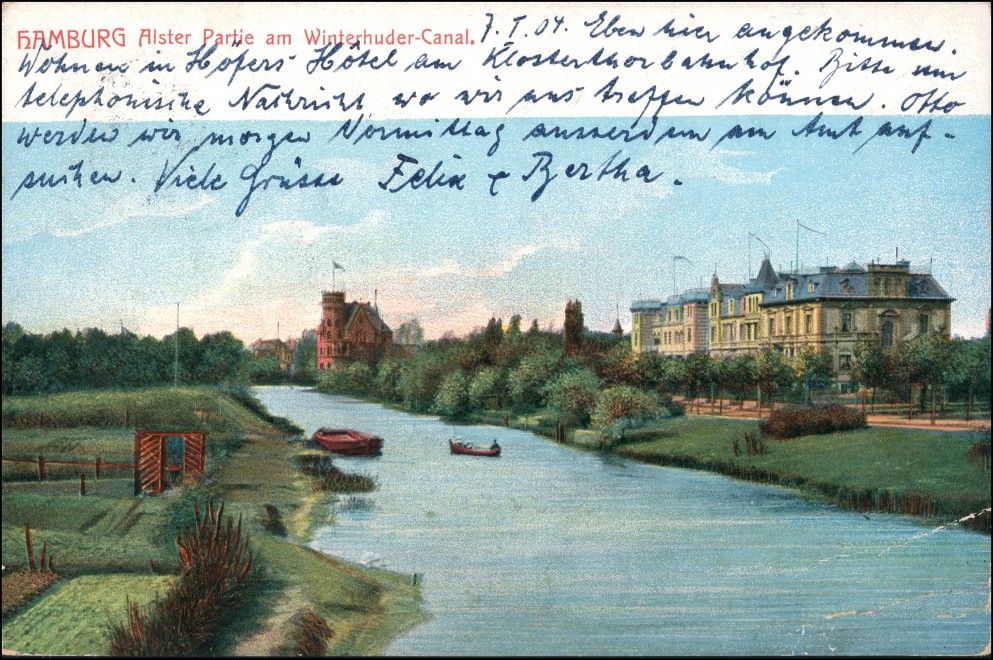 HAMBURG Alster Partie am Winterhuder-Canal. 7. I. 04. Eben hier angekommen.
Wohnen in Höfers Hôtel am Klosterthorbahnhof. Bitte um
telephonische Nachricht wo wir uns treffen können. Otto
werden wir morgen Vormittag ausserdem am Amt auf-
suchen. Viele Grüsse Felix & Bertha.